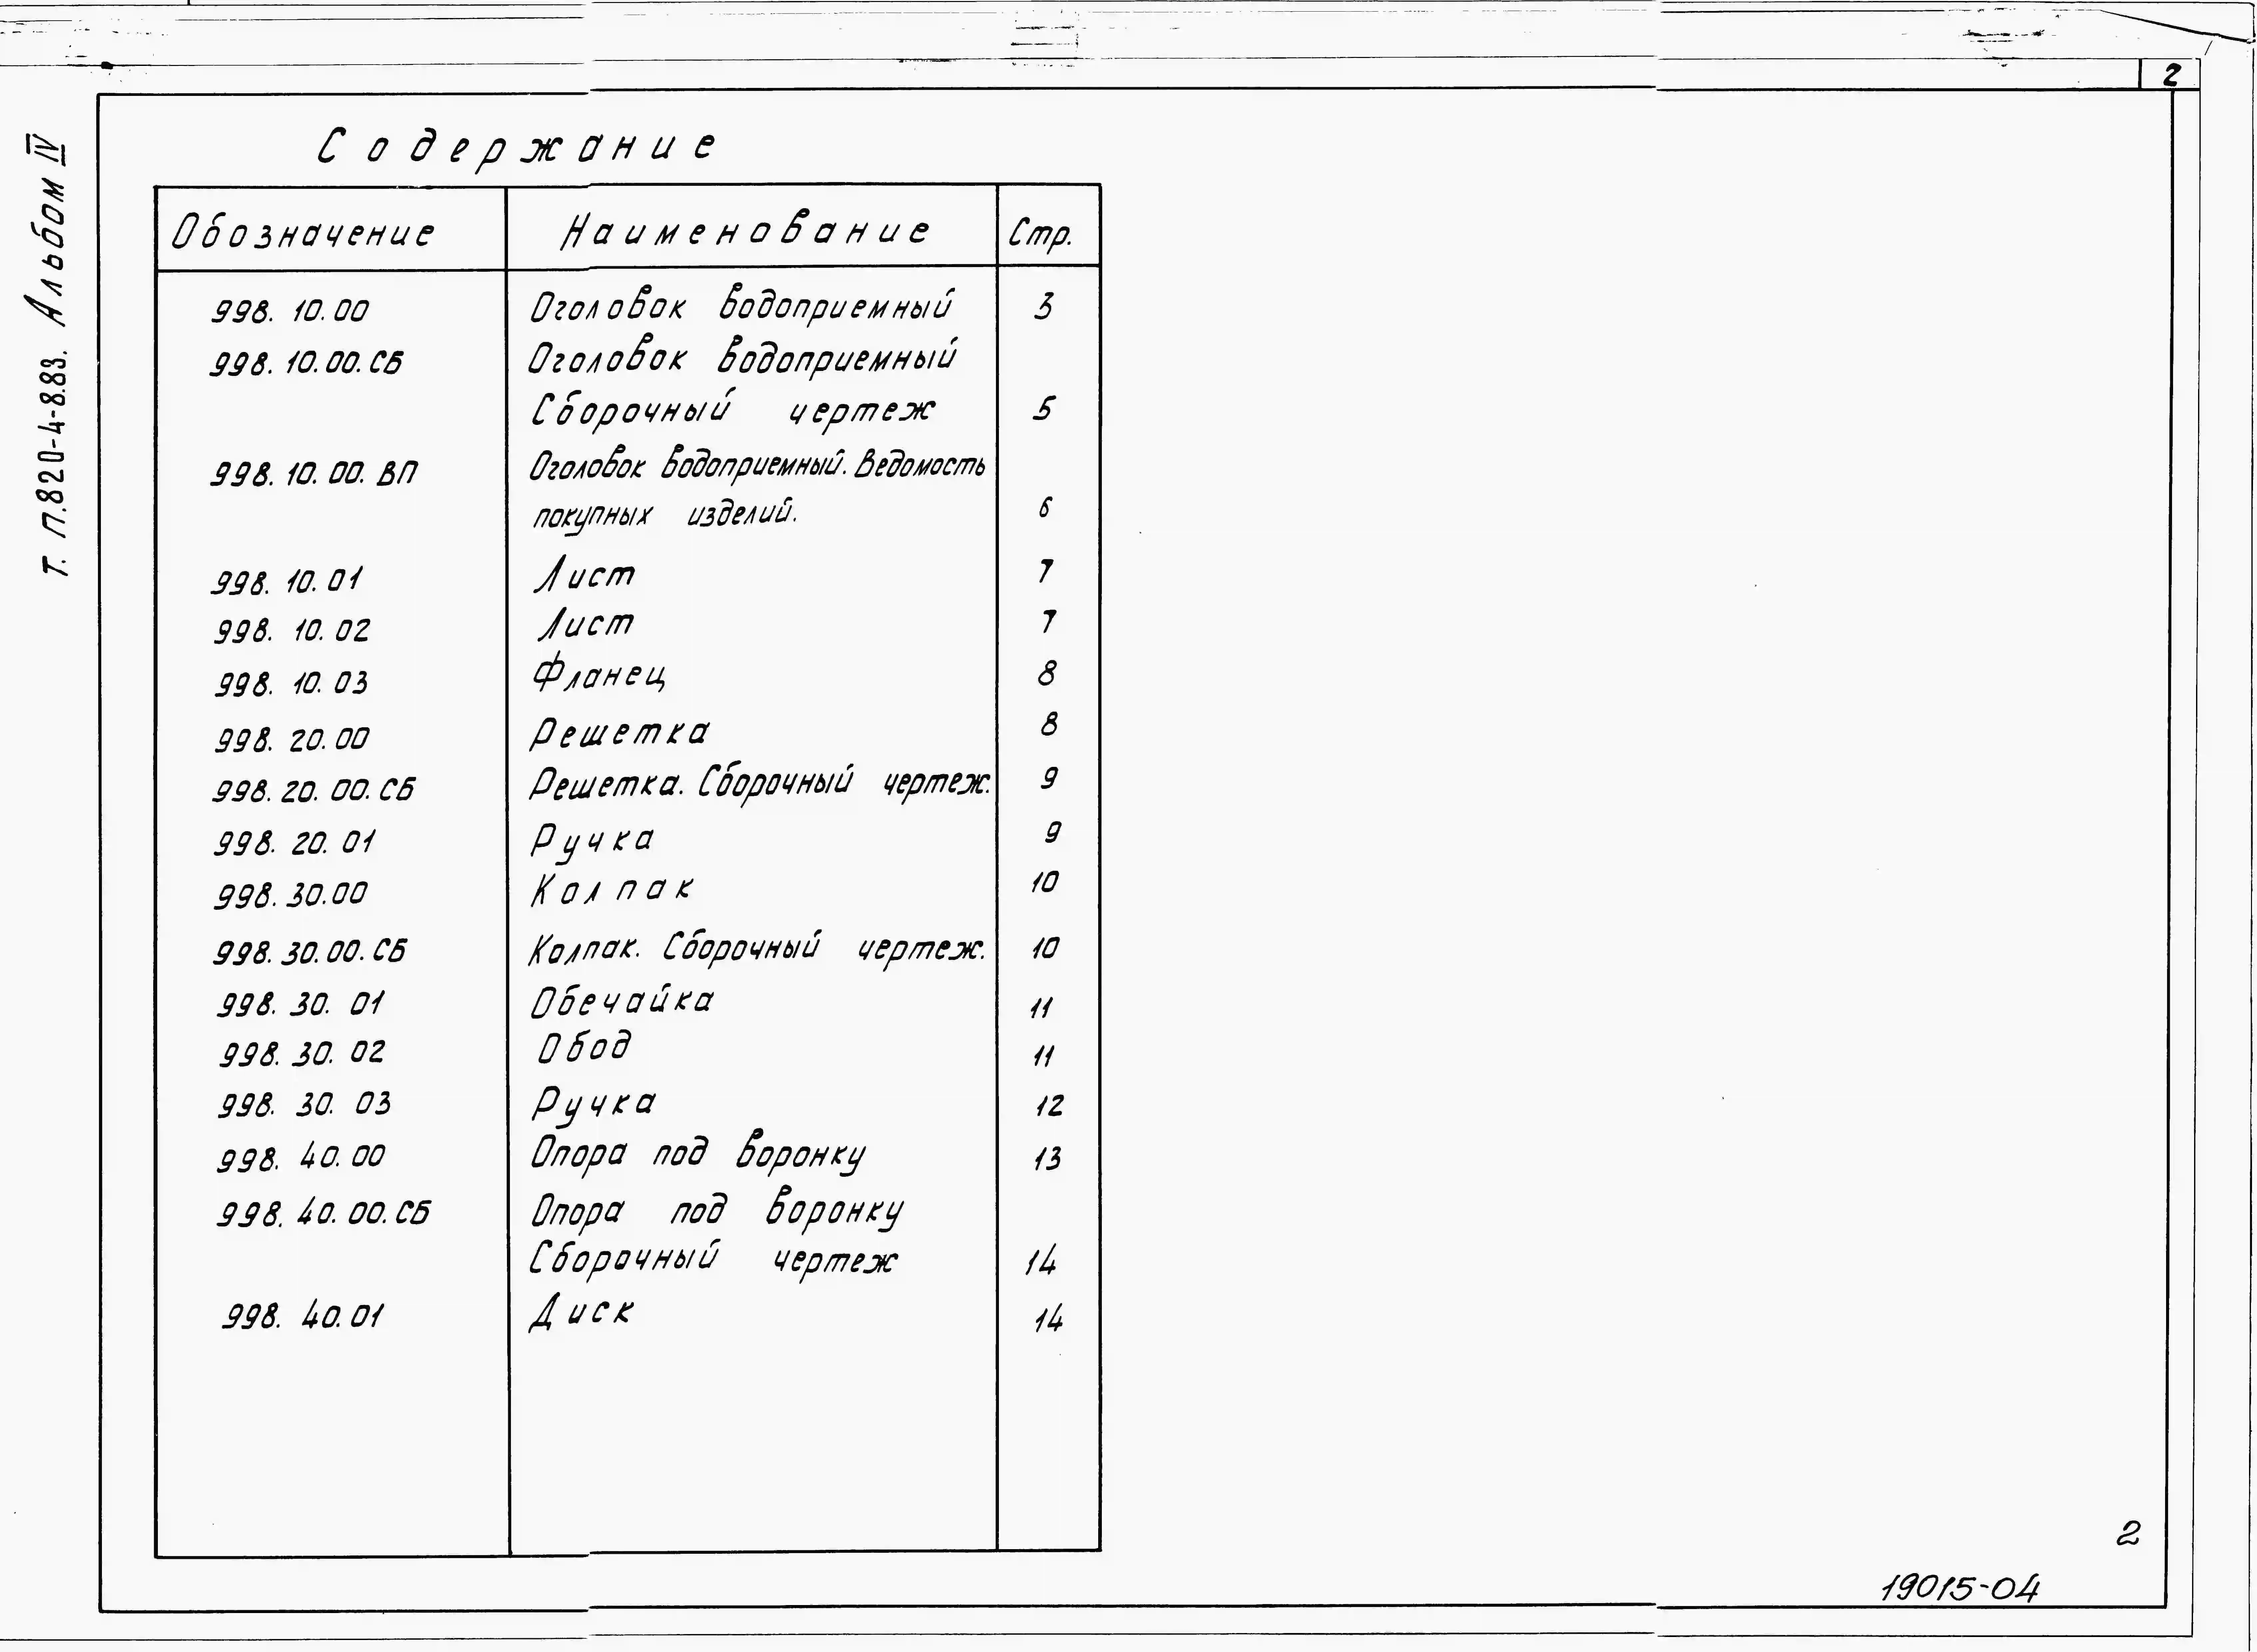 2
Т. П. 820-4-8.83. Альбом IV
Содержание
Обозначение Наименование Стр.
998. 10.00 Оголовок водоприемный 3
998. 10.00.СБ Оголовок водоприемный
Сборочный чертеж 5
998. 10. 00. ВП Оголовок водоприемный. Ведомость
покупных изделий. 6
998. 10. 01 Лист 7
998. 10. 02 Лист 7
998. 10. 03 Фланец 8
998. 20. 00 Решетка 8
998. 20. 00. СБ Решетка. Сборочный чертеж. 9
998. 20. 01 Ручка 9
998. 30.00 Колпак 10
998. 30. 00. СБ Колпак. Сборочный чертеж. 10
998. 30. 01 Обечайка 11
998. 30. 02 Обод 11
998. 30. 03 Ручка 12
998. 40. 00 Опора под воронку 13
998. 40. 00. СБ Опора под воронку
Сборочный чертеж 14
998. 40. 01 Диск 14
2
19015-04